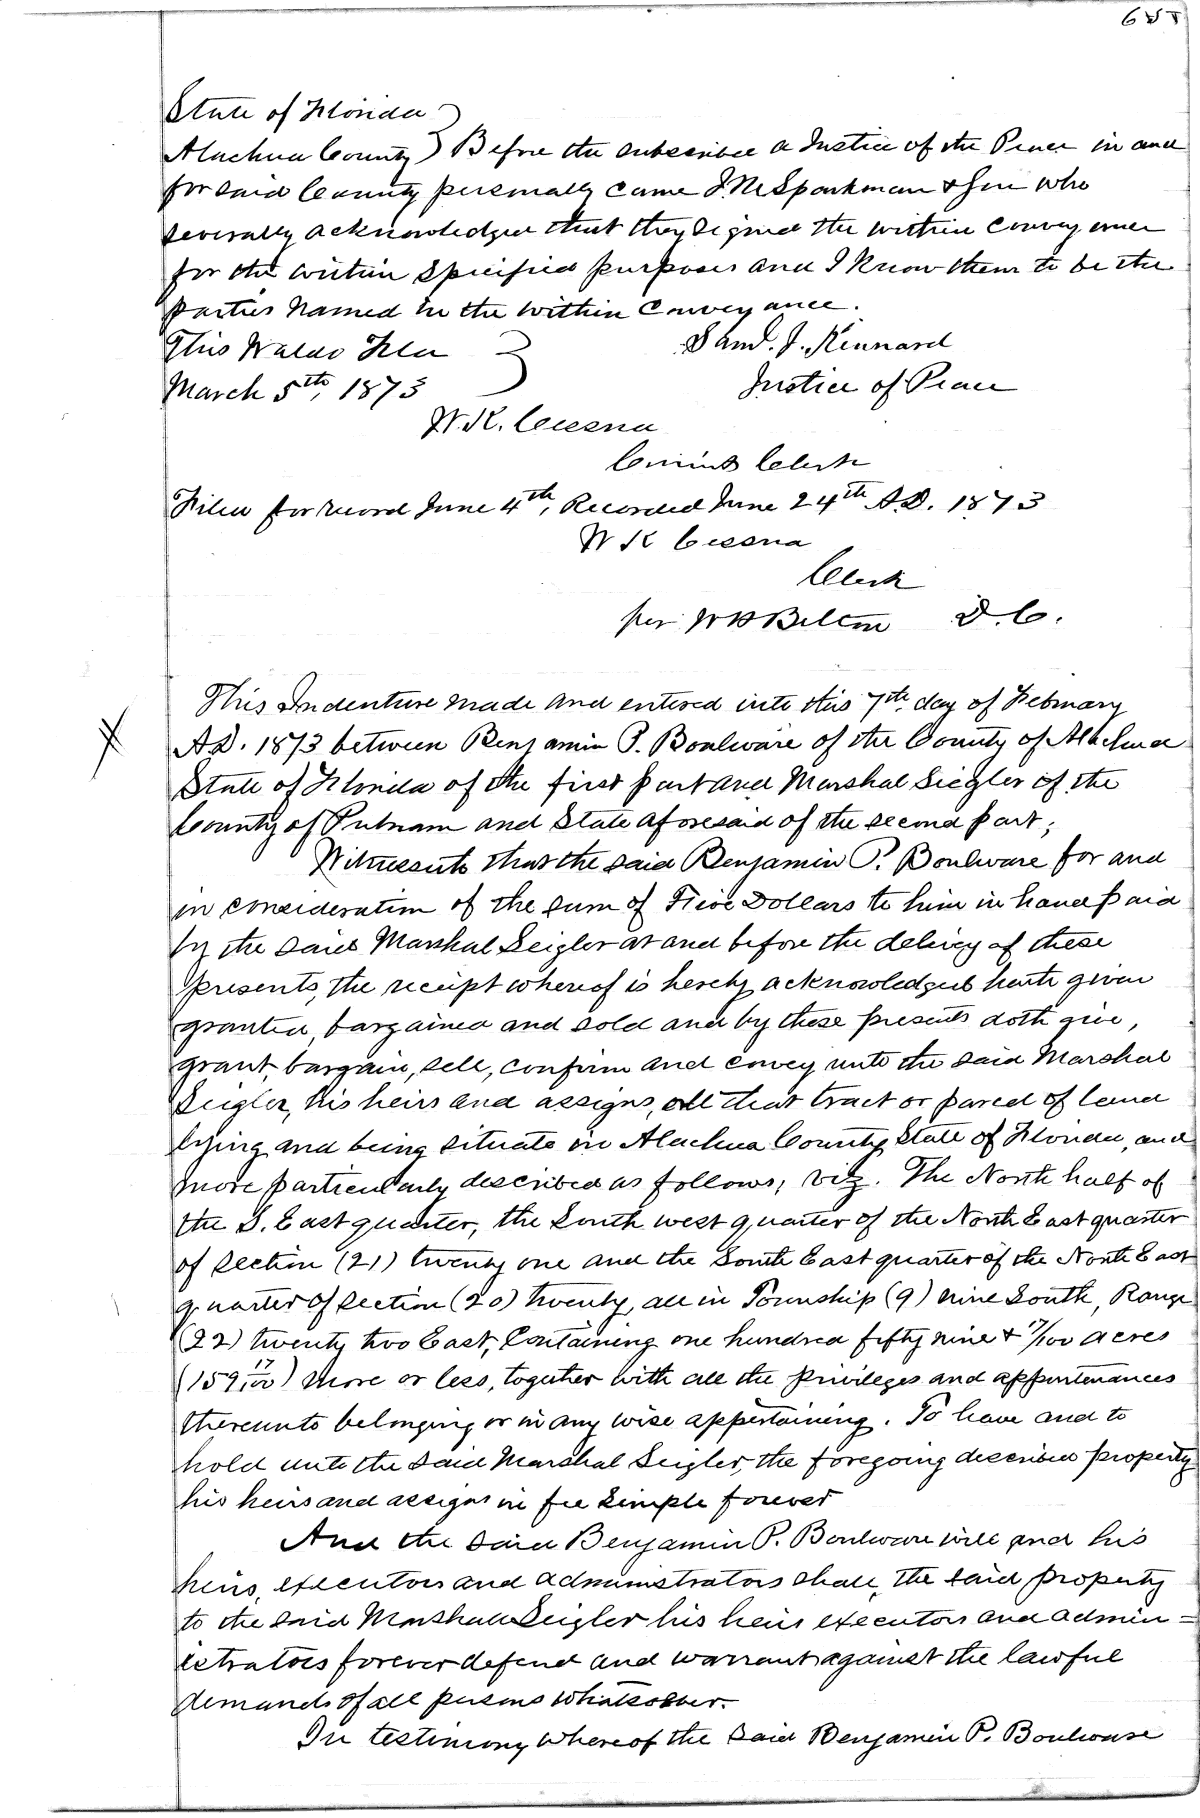 State of Florida
Alachua County } Before the subscriber a Justice of the Peace in and
for said County personally came J. N. Sparkman & who
severally acknowledged that they signed the within conveyance
for the within specified purposes and I know them to be the
parties named in the within conveyance.
This Waldo Fla } Saml. J. Kennard
March 5th, 1873 Justice of Peace
W. K. Cessna
Circuit Clerk
Filed for record June 4th, Recorded June 24th A.D. 1873
W K Cessna
Clerk
per W H Belton D. C.
This Indenture made and entered into this 7th day of February
A.D. 1873 between Benjamin P. Boulware of the County of Alachua
State of Florida of the first part and Marshal Siegler of the
County of Putnam and State aforesaid of the second part;
Witnesseth that the said Benjamin P. Boulware for and
in consideration of the sum of Five Dollars to him in hand paid
by the said Marshal Seigler at and before the delivey of these
presents, the receipt whereof is hereby acknowledged hath given
granted, bargained and sold and by these presents doth give,
grant, bargain, sell, confirm and convey unto the said Marshal
Seigler, his heirs and assigns, all that tract or parcel of land
lying and being situate in Alachua County State of Florida, and
more particularly described as follows; viz. The North half of
the S. East quarter, the South west quarter of the North East quarter
of section (21) twenty one and the South East quarter of the North East
quarter of section (20) twenty, all in Township (9) nine South, Range
(22) twenty two East, Containing one hundred fifty nine & 17/100 acres
(159 17/100) more or less, together with all the privileges and appurtenances
thereunto belonging or in any wise appertaining. To have and to
hold unto the said Marshal Seigler, the foregoing described property
his heirs and assigns in fee simple forever
And the said Benjamin P. Boulware will and his
heirs, executors and administrators shall, the said property
to the said Marshal Seigler his heirs executors and admin=
istrators forever defend and warrant against the lawful
demands of all persons whatsoever.
In testimony whereof the said Benjamin P. Boulware